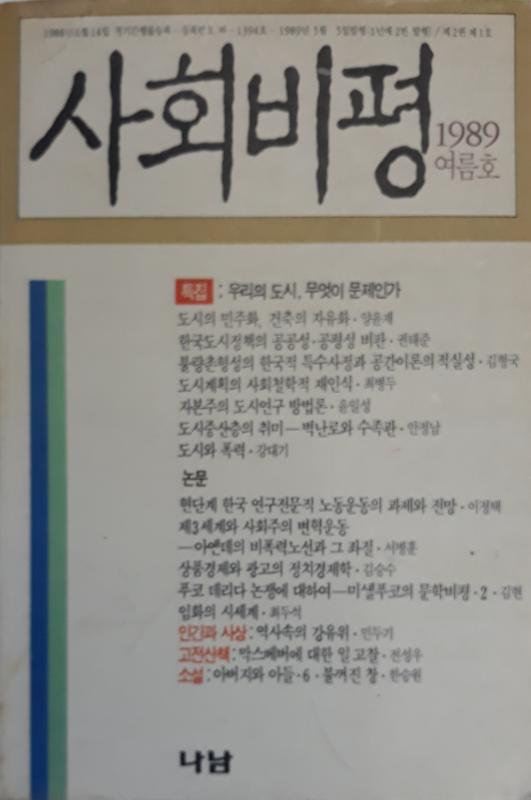 1988년 6월 14일 정기간행물등록 · 등록번호 바 - 1394호 · 1989년 5월 5일발행(1년에 2번 발행) / 제2권 제1호
사회비평
1989
여름호
특집 : 우리의 도시, 무엇이 문제인가
도시의 민주화, 건축의 자유화 · 양윤재
한국도시정책의 공공성 · 공평성 비판 · 권태준
불량촌형성의 한국적 특수사정과 공간이론의 적실성 · 김형국
도시계획의 사회철학적 재인식 · 최병두
자본주의 도시연구 방법론 · 윤일성
도시중산층의 취미 — 벽난로와 수족관 · 안정남
도시와 폭력 · 강대기
논문
현단계 한국 연구전문직 노동운동의 과제와 전망 · 이정택
제3세계와 사회주의 변혁운동
—아옌데의 비폭력노선과 그 좌절 · 서병훈
상품경제와 광고의 정치경제학 · 김승수
푸코 데리다 논쟁에 대하여—미셸푸코의 문학비평 · 2 · 김현
임화의 시세계 · 최두석
인간과 사상 : 역사속의 강유위 · 민두기
고전산책 : 막스베버에 대한 일 고찰 · 전성우
소설 : 아버지와 아들 · 6 · 불꺼진 창 · 한승원
나남